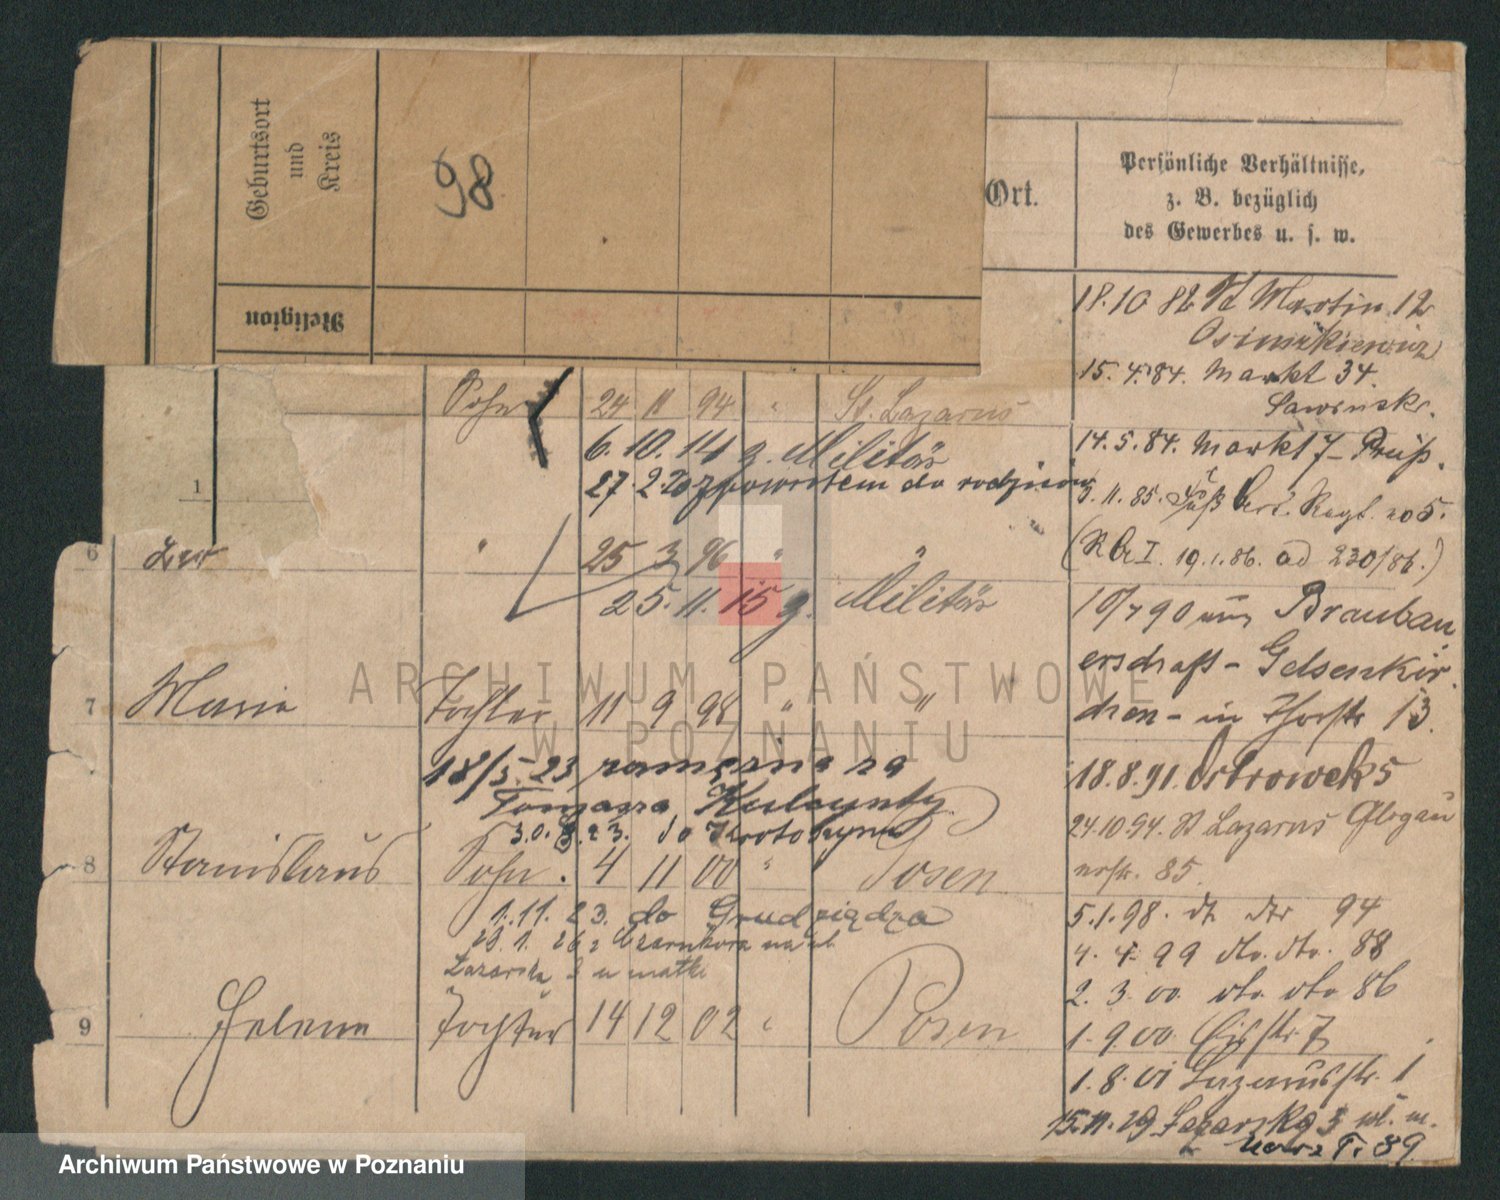 Geburtsort
und
Kreis
98
Religion
Ort.
Persönliche Verhältnisse,
z. B. bezüglich
des Gewerbes u. s. w.
18.10 82 St Martin 12
15. 4. 84. Markt 34.
14. 5. 84. Markt 7
3. 11. 85. Regt. no 5.
19.1.86. ad 230/86.)
10/7 90 Braubau
erschaft - Gelsenkir
chen - in 13.
18.8.91. Ostrowek 5
24.10.94. St Lazarus Glogau
erstr. 85
5.1.98. dt dto 94
4. 4. 99 dto. dto. 88
2. 3. 00. dto dto 86
1. 9 00 7
1. 8. 01 Lazarusstr. 1
15.11.29 Lazarska 3
Sohn 24 11 94 " St. Lazarus
6. 10. 14 z. Militär
27. 2. 20 z powrotem do rodziców
1
6 " 25 3 96 " "
25. 11. 15 z. Militär
7 Maria Tochter 11 9 98 " "
18/5. 23 zamężna za
Tomasza
30. 8. 23. do Krotoszyna
8 Stanislaus Sohn. 4 11 00 " Posen
1. 11. 23. do Grudziądza
26 z Czarnkowa na ul
Lazarska 3 u matki
9 Helena Tochter 14 12 02 " Posen
ARCHIWUM PAŃSTWOWE
W POZNANIU
Archiwum Państwowe w Poznaniu